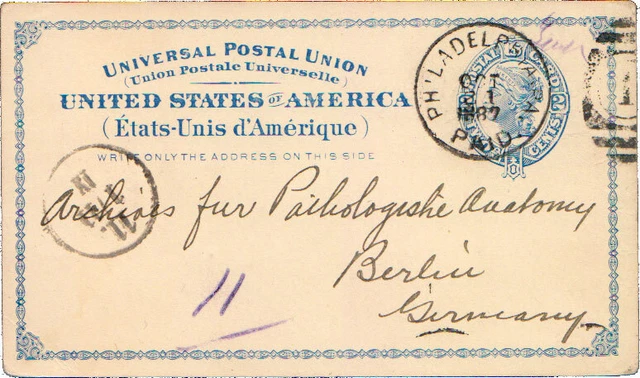 UNIVERSAL POSTAL UNION
(Union Postale Universelle)
UNITED STATES OF AMERICA
(États-Unis d'Amérique)
WRITE ONLY THE ADDRESS ON THIS SIDE
PHILADELPHIA, PA.
OCT
1
87
PAID
POSTAL CARD
TWO CENTS
Archives fur Pathologische Anatomy
Berlin
Germany
11